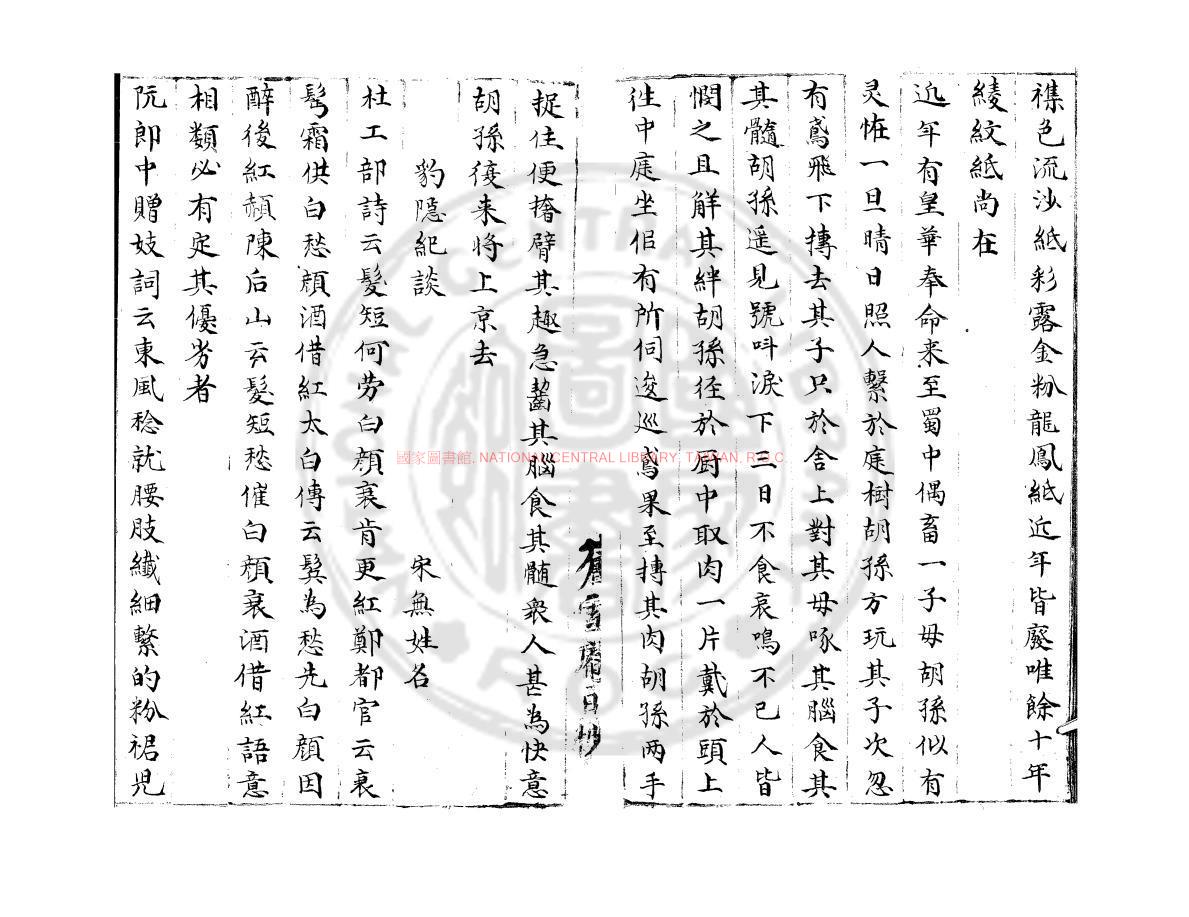 襍色流沙紙彩露金粉龍鳳紙近年皆廢唯餘十年
綾紋紙尚在
近年有皇華奉命来至蜀中偶畜一子母胡孫似有
灵恠一旦晴日照人繫於庭樹胡孫方玩其子次忽
有鳶飛下摶去其子只於舍上對其母啄其腦食其
其髓胡孫遥見號呌淚下三日不食哀鳴不已人皆
憫之且觧其絆胡孫径於厨中取肉一片戴於頭上
徃中庭坐佀有所伺逡巡鳶果至摶其肉胡孫两手
捉住便撦臂其趣急齧其腦食其髄衆人甚為快意
胡孫後来将上京去
豹隠紀談
宋無姓名
杜工部詩云髮短何劳白顔衰肯更紅鄭都官云衰
髩霜供白愁顔酒借紅太白傳云鬂為愁先白顔因
醉後紅頳陳后山云髮短愁催白顔衰酒借紅語意
相類必有定其優劣者
阮郎中贈妓詞云東風稔就腰肢纖細繫的粉裙児
國家圖書館, NATIONAL CENTRAL LIBRARY, TAIWAN, R.O.C.